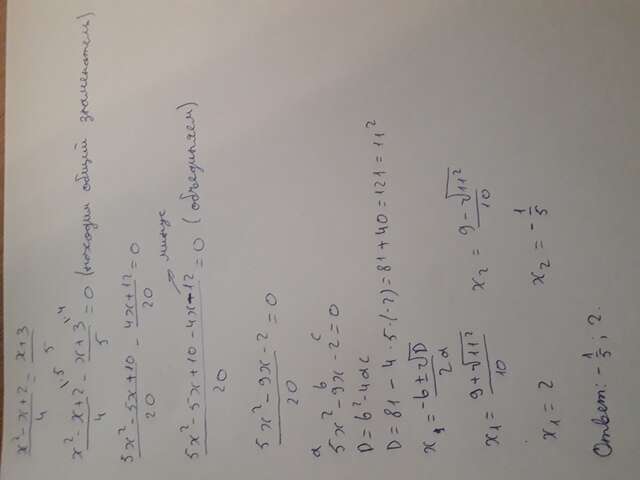 x²-x+2/4 = x+3/5
x²-x+2\5/4 - x+3\4/5 = 0 (находим общий знаменатель)
5x²-5x+10/20 - 4x+12/20 = 0
5x²-5x+10-4x-12/20 = 0 (объединяем)
минус
5x²-9x-2/20 = 0
a b c
5x²-9x-2=0
D=b²-4ac
D=81-4·5·(-2)=81+40=121=11²
x₁=-b±√D/2a
x₁=9+√11²/10 x₂=9-√11²/10
x₁=2 x₂=-1/5
Ответ: -1/5; 2.